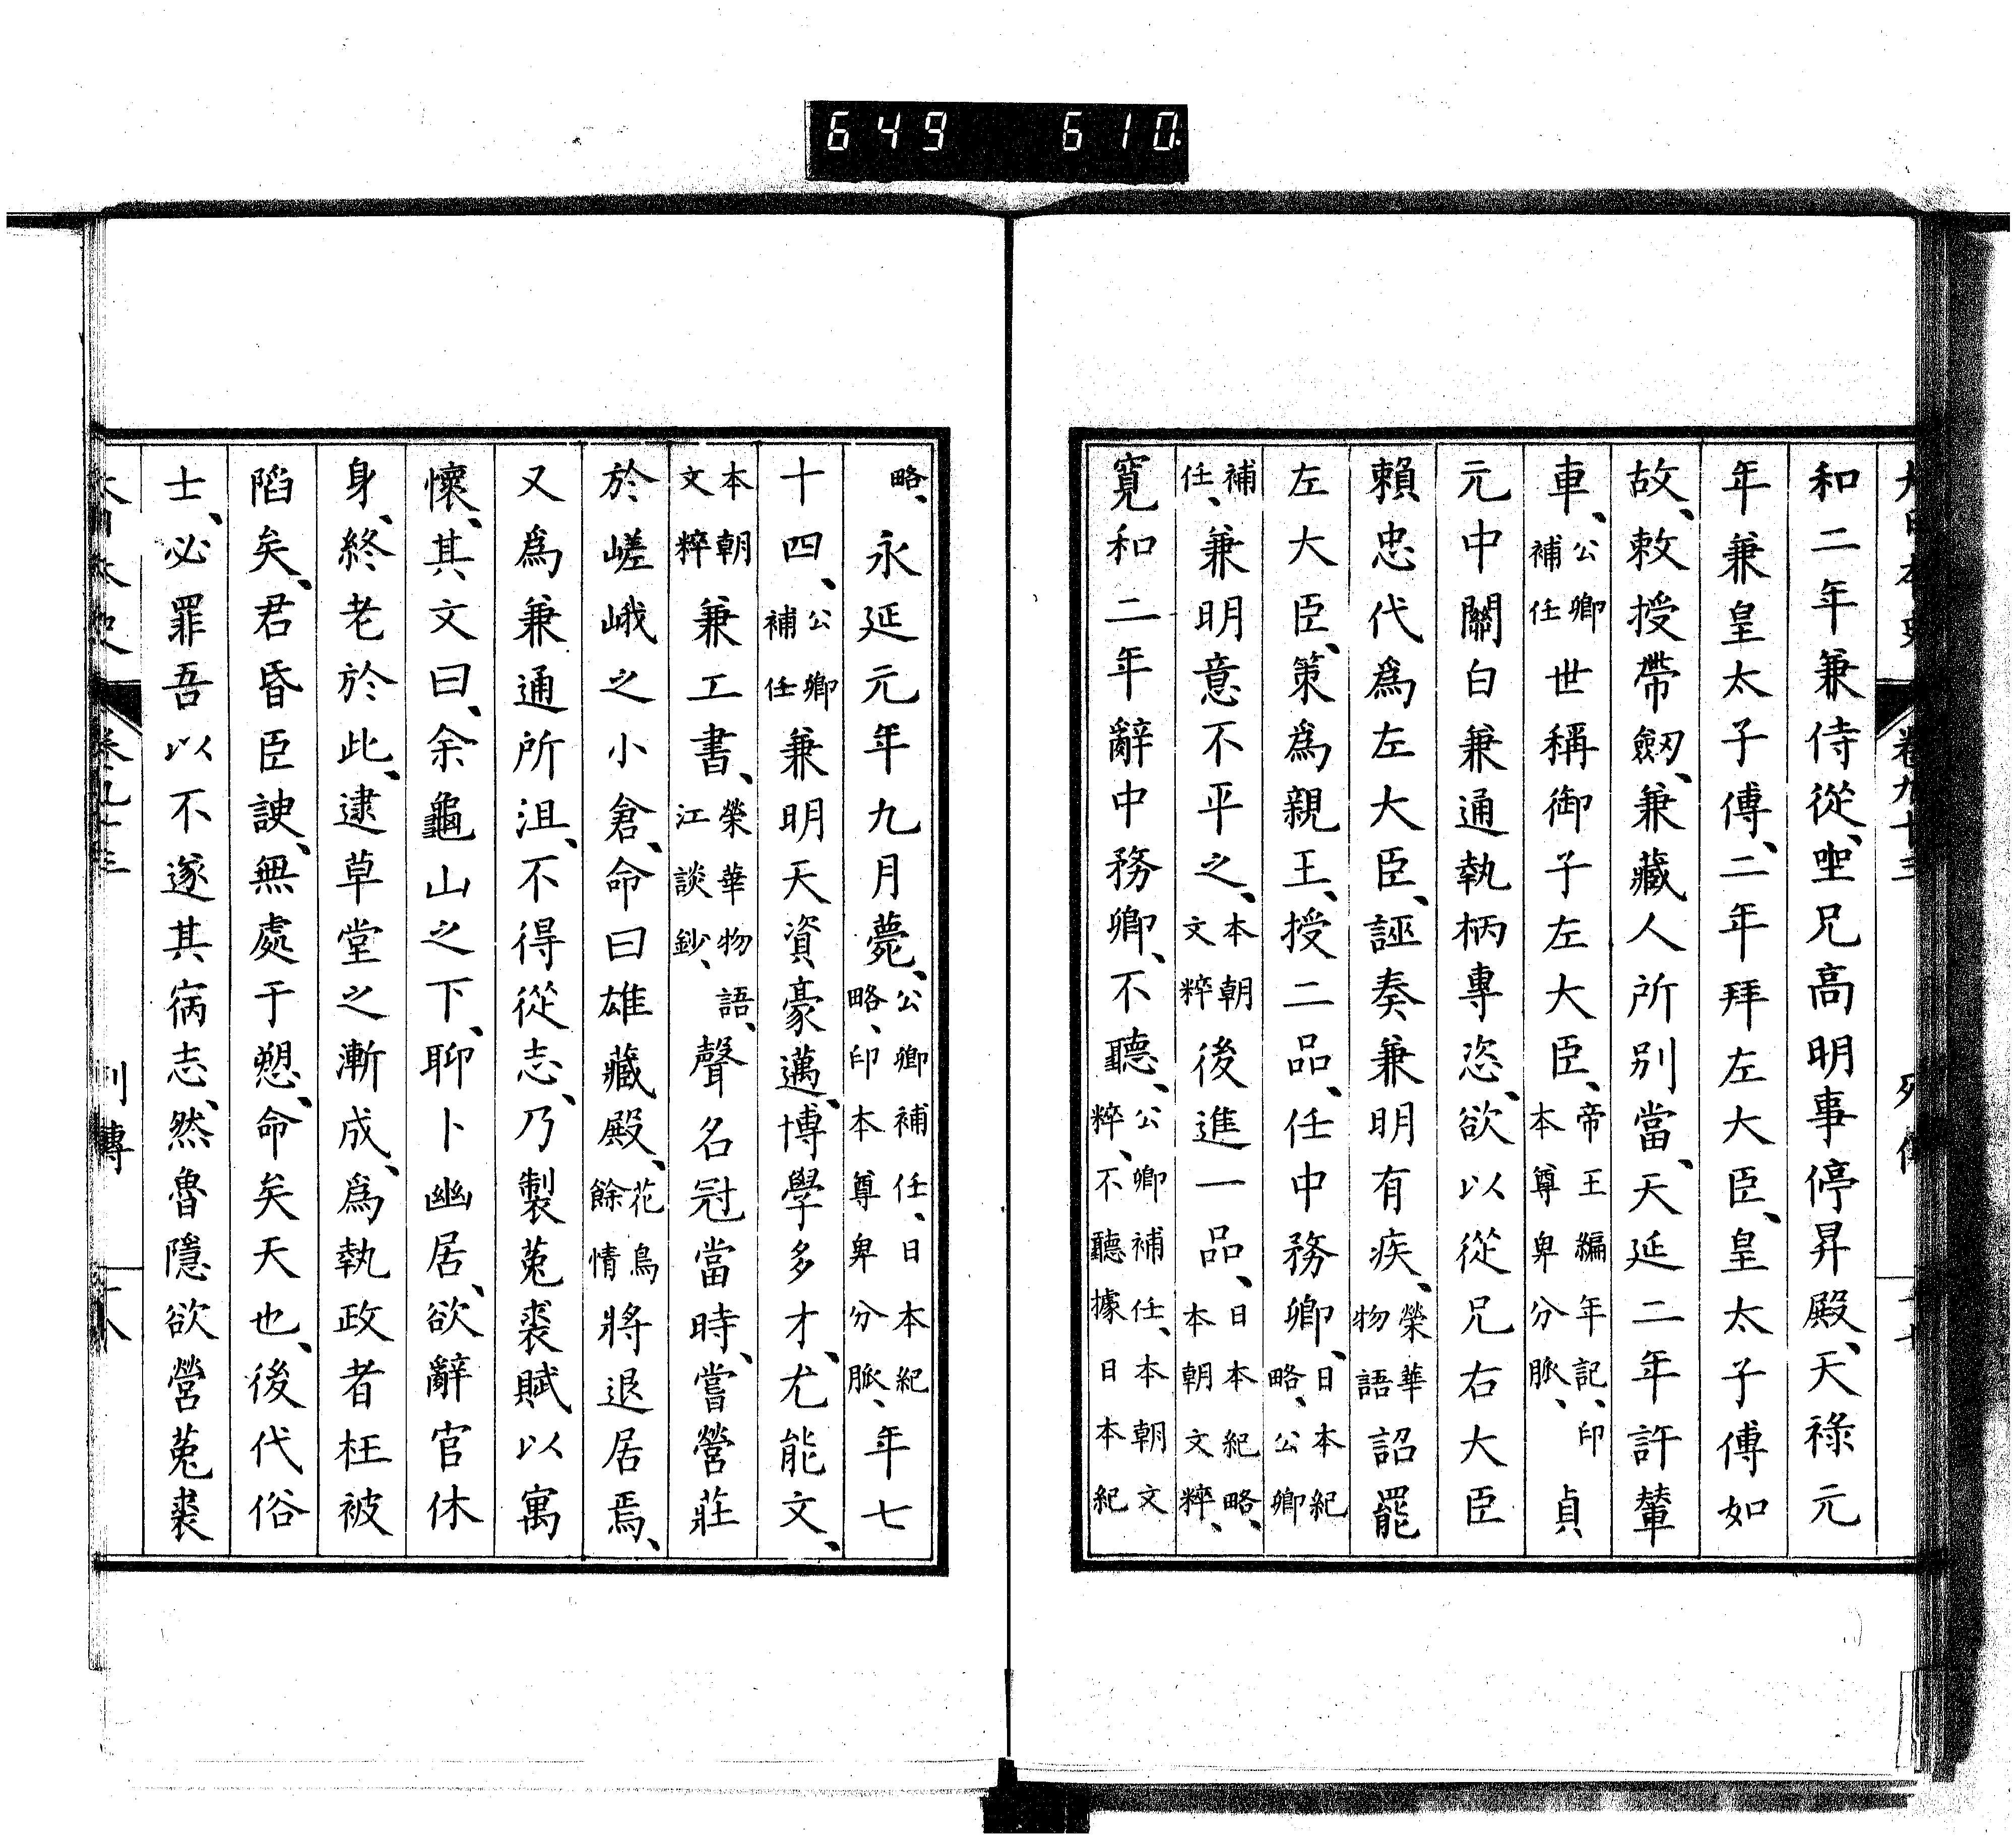 649 610
大日本史 卷九十三 列傳 十七
和二年兼侍從、坐兄高明事停昇殿、天祿元
年兼皇太子傅、二年拜左大臣、皇太子傅如
故、敕授帶劔、兼藏人所別當、天延二年許輦
車、公卿補任世稱御子左大臣、帝王編年記、印本尊卑分脈、貞
元中關白兼通執柄專恣、欲以從兄右大臣
賴忠代爲左大臣、誣奏兼明有疾、榮華物語詔罷
左大臣、策爲親王、授二品、任中務卿、日本紀略、公卿
補任、兼明意不平之、本朝文粹後進一品、日本紀略、本朝文粹、
寬和二年辭中務卿、不聽、公卿補任、本朝文粹、不聽據日本紀
略、永延元年九月薨、公卿補任、日本紀略、印本尊卑分脈、年七
十四、公卿補任兼明天資豪邁、博學多才、尤能文、
本朝文粹兼工書、榮華物語、江談鈔、聲名冠當時、嘗營莊
於嵯峨之小倉、命曰雄藏殿、花鳥餘情將退居焉、
又爲兼通所沮、不得從志、乃製菟裘賦以寓
懷、其文曰、余龜山之下、聊卜幽居、欲辭官休
身、終老於此、逮草堂之漸成、爲執政者枉被
陷矣、君昏臣諛、無處于愬、命矣天也、後代俗
士、必罪吾以不遂其病志、然魯隱欲營菟裘
大日本史 卷九十三 列傳 十八